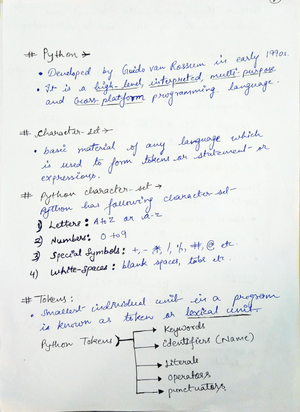 # Python →
• Developed by Guido van Rossum in early 1990s.
• It is a high-level, interpreted, multi-purpose
and cross-platform programming language.
# Character-set →
• basic material of any language which
is used to form tokens or statement or
expressions.
# Python character-set →
Python has following character set-
1) Letters: A to Z or a-z
2) Numbers: 0 to 9
3) Special Symbols: +, -, *, /, %, #, @ etc
4) White-Spaces: blank spaces, tabs etc.
# Tokens:
• Smallest individual unit in a program
is known as token or lexical unit.
Python Tokens → Keywords
→ Identifiers (Name)
→ Literals
→ Operators
→ punctuators